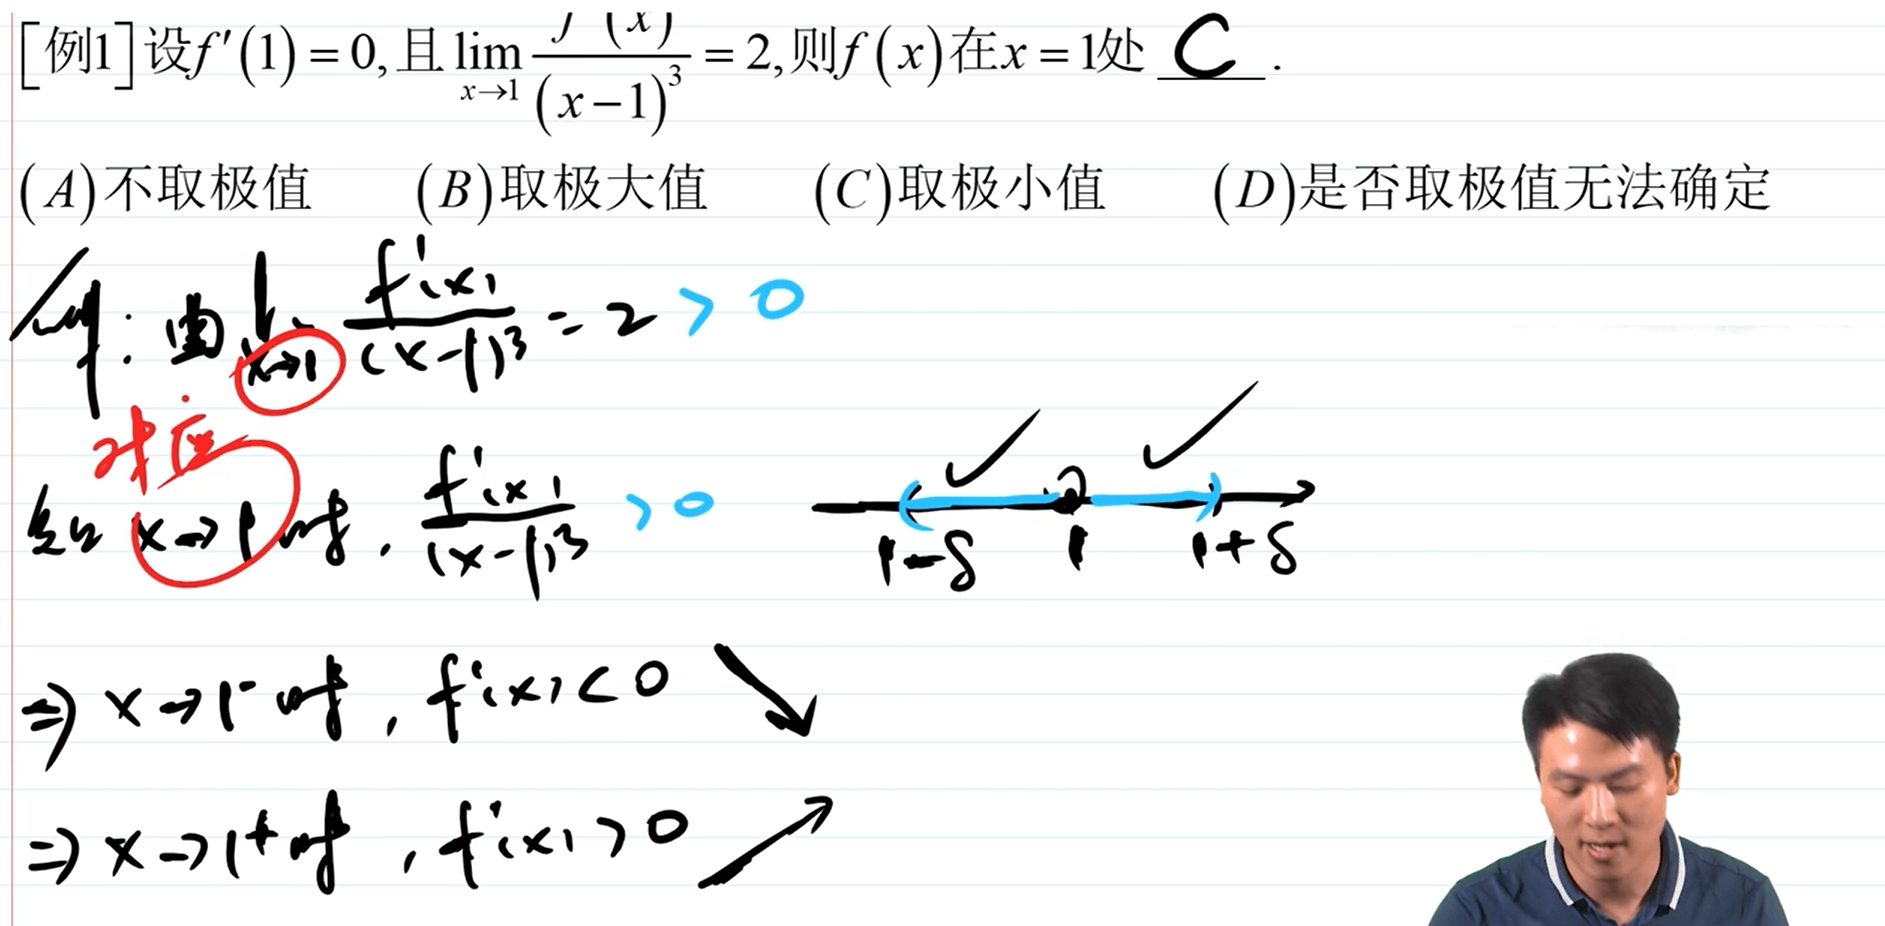 [例1]设f′(1)=0,且lim x→1 f′(x)/(x−1)³=2,则f(x)在x=1处 C .
(A)不取极值 (B)取极大值 (C)取极小值 (D)是否取极值无法确定
由 lim x→1 f′(x)/(x−1)³ = 2 > 0
对应
知 x→1 时, f′(x)/(x−1)³ > 0
1−δ 1 1+δ
⇒ x→1⁻ 时, f′(x) < 0
⇒ x→1⁺ 时, f′(x) > 0